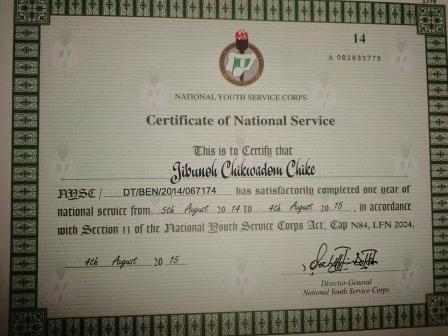 14
A 002833779
NATIONAL YOUTH SERVICE CORPS
Certificate of National Service
This is to Certify that
Jibunoh Chikwadom Chike
NYSC/ DT/BEN/2014/067174 has satisfactorily completed one year of
national service from 5th August 2014 to 4th August 2015, in accordance
with Section 11 of the National Youth Service Corps Act, Cap N84, LFN 2004.
4th August 2015
Director-General
National Youth Service Corps